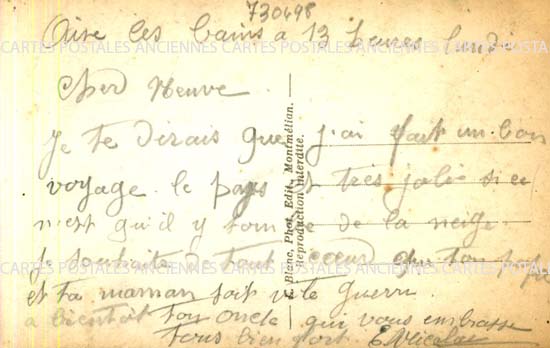 730498
Aixe les bains a 13 heures lundi
CARTES POSTALES ANCIENNES CARTES POSTALES ANCIENNES CARTES POSTALES ANCIENNES
Cher Neuve
Je te dirais que j'ai fait un bon
voyage le pays est très jolie si ce
n'est qu'il y tombe de la neige.
Je souhaite de tout cœur que ton papa
et ta maman soit vite guerri
a bientôt ton oncle qui vous embrasse
tous bien fort E Nicolas
E. Blanc, Phot. Edit., Montmélian.
Reproduction interdite.